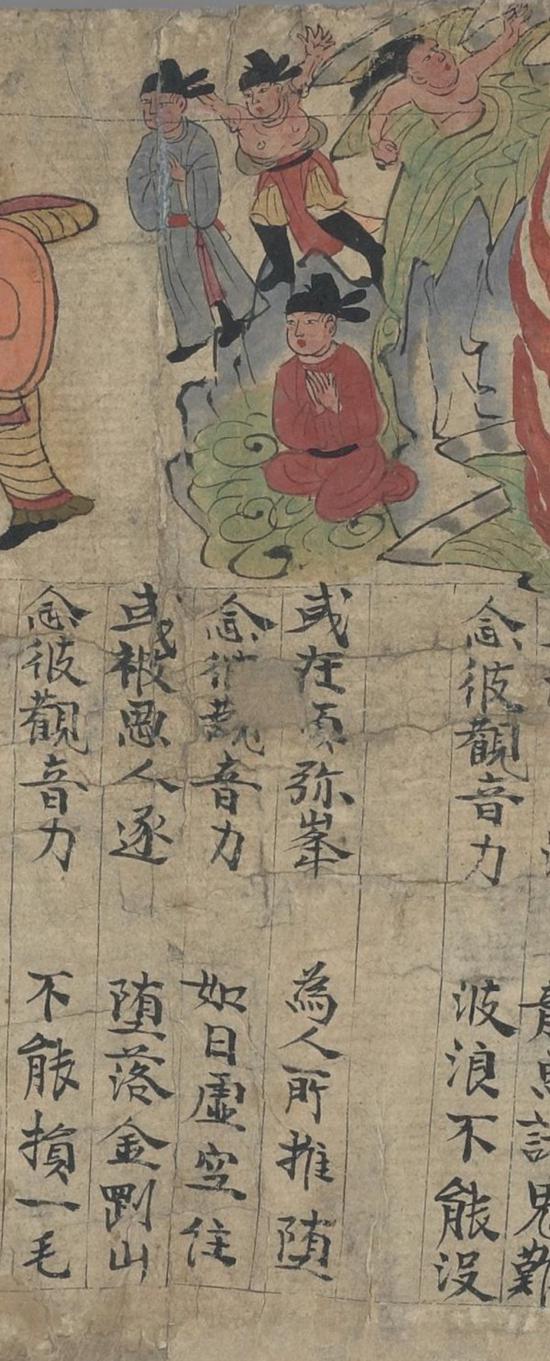 龍魚諸鬼難
念彼觀音力 波浪不能没
或在須弥峯 為人所推堕
念彼觀音力 如日虛空住
或被惡人逐 堕落金剛山
念彼觀音力 不能損一毛